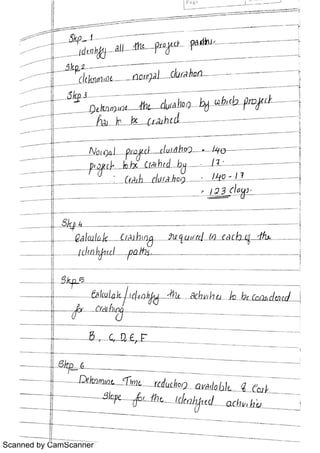 Step_1
identify all the project paths.
Step 2
determine normal duration
Step 3
Determine the duration by which project
has to be crashed
Normal project duration = 140
project to be crashed by = 17.
: Crash duration = 140 - 17
= 123 days.
Step 4
Calculate crashing required in each of the
identified paths.
Step 5
Calculate/identify the activities to be considered
for crashing
B, C, D, E, F
Step 6
Determine Time reduction available & Cost
Slope for the identified activities
Scanned by CamScanner